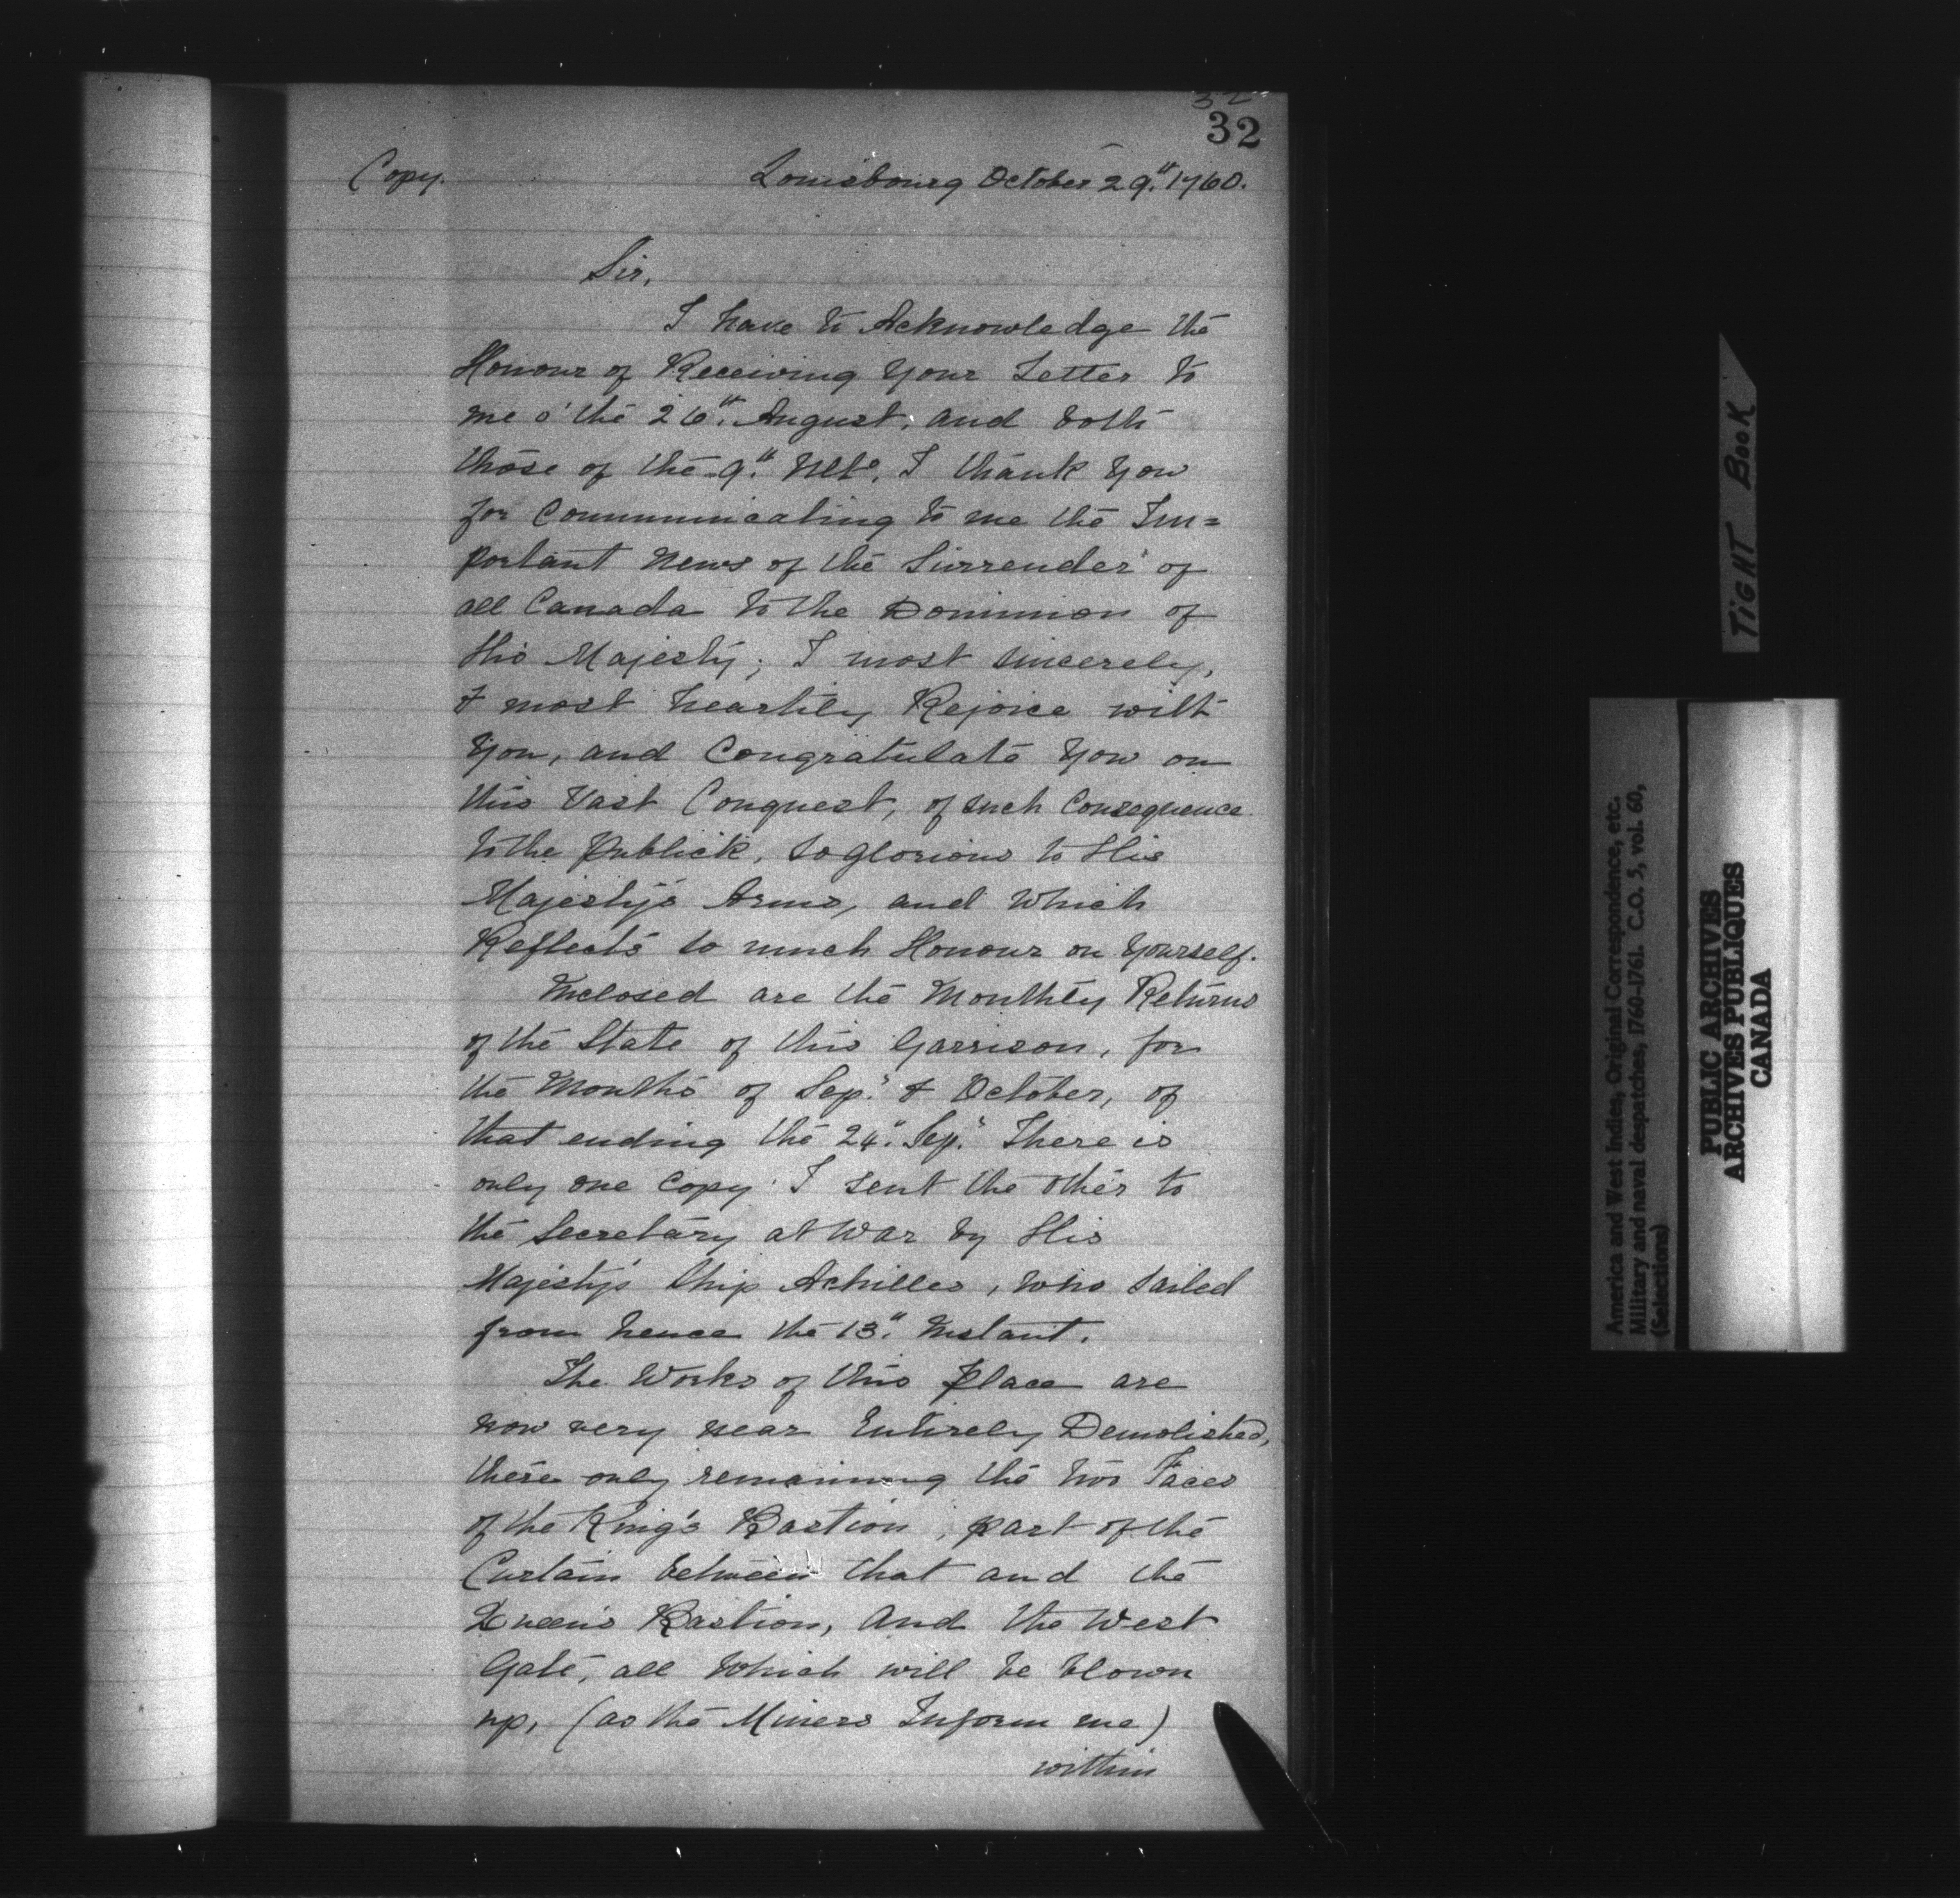 32
32
Copy.
Louisbourg October 29.th 1760.
Sir,
I have to Acknowledge the
Honour of Receiving Your Letter to
me o' the 26.th August, and both
those of the 9.th Ulto. I thank You
for Communicating to me the Im=
portant News of the Surrender of
all Canada to the Dominion of
His Majesty; I most sincerely,
& most heartily Rejoice with
You, and Congratulate You on
this Vast Conquest, of such Consequence
to the Publick, so glorious to His
Majesty's Arms, and Which
Reflects so much Honour on Yourself.
Inclosed are the Monthly Returns
of the State of this Garrison, for
the Months of Sep.r & October, of
that ending the 24.th Sep.r There is
only one Copy. I sent the other to
the Secretary at War by His
Majesty's Ship Achilles, who sailed
from hence the 13.th Instant.
The Works of this Place are
now very near Entirely Demolished,
there only remaining the two Faces
of the King's Bastion, part of the
Curtain between that and the
Queen's Bastion, And the West
Gate, all Which will be blown
up, (as the Miners Inform me)
within
TIGHT BOOK
America and West Indies, Original Correspondence, etc.
Military and naval despatches, 1760-1761. C.O. 5, vol. 60,
(Selections)
PUBLIC ARCHIVES
ARCHIVES PUBLIQUES
CANADA